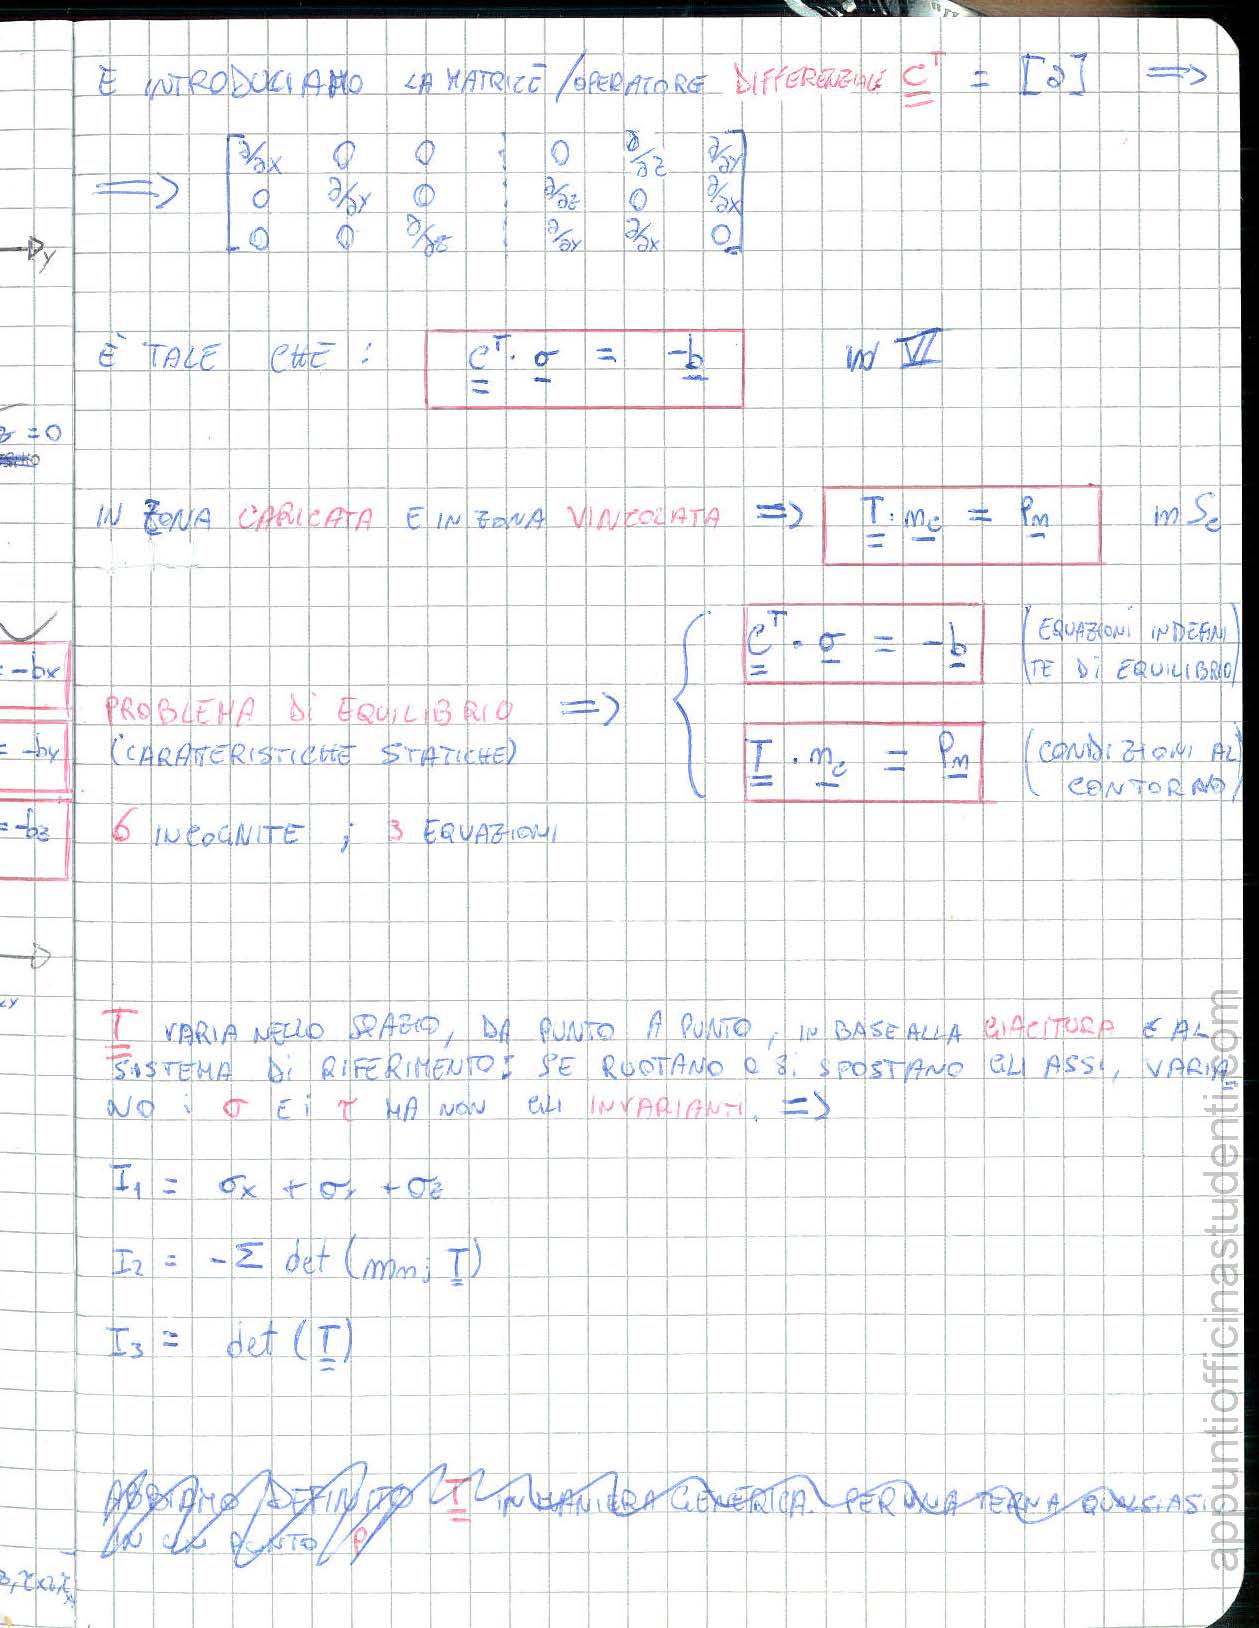 E INTRODUCIAMO LA MATRICE/OPERATORE DIFFERENZIALE C^T = [∂] ⟹
⟹ [ ∂/∂x 0 0 ¦ 0 ∂/∂z ∂/∂y
0 ∂/∂y 0 ¦ ∂/∂z 0 ∂/∂x
0 0 ∂/∂z ¦ ∂/∂y ∂/∂x 0 ]
y
È TALE CHE : C^T · σ = -b in V
= 0
IN ZONA CARICATA E IN ZONA VINCOLATA ⟹ T · n_c = p_n in S_c
C^T · σ = -b (EQUAZIONI INDEFINI
TE DI EQUILIBRIO)
= -bx
PROBLEMA DI EQUILIBRIO ⟹ {
= -by
(CARATTERISTICHE STATICHE)
T · n_c = p_n (CONDIZIONI AL
CONTORNO)
= -bz
6 INCOGNITE ; 3 EQUAZIONI
T VARIA NELLO SPAZIO, DA PUNTO A PUNTO, IN BASE ALLA GIACITURA E AL
SISTEMA DI RIFERIMENTO: SE RUOTANO O SI SPOSTANO GLI ASSI, VARIA
NO i σ E i τ MA NON GLI INVARIANTI. ⟹
I1 = σx + σy + σz
I2 = -Σ det (min; T)
I3 = det (T)
ABBIAMO DEFINITO T IN MANIERA GENERICA. PER UNA TERNA QUALSIASI
IN UN PUNTO P
appuntiofficinastudenti.com